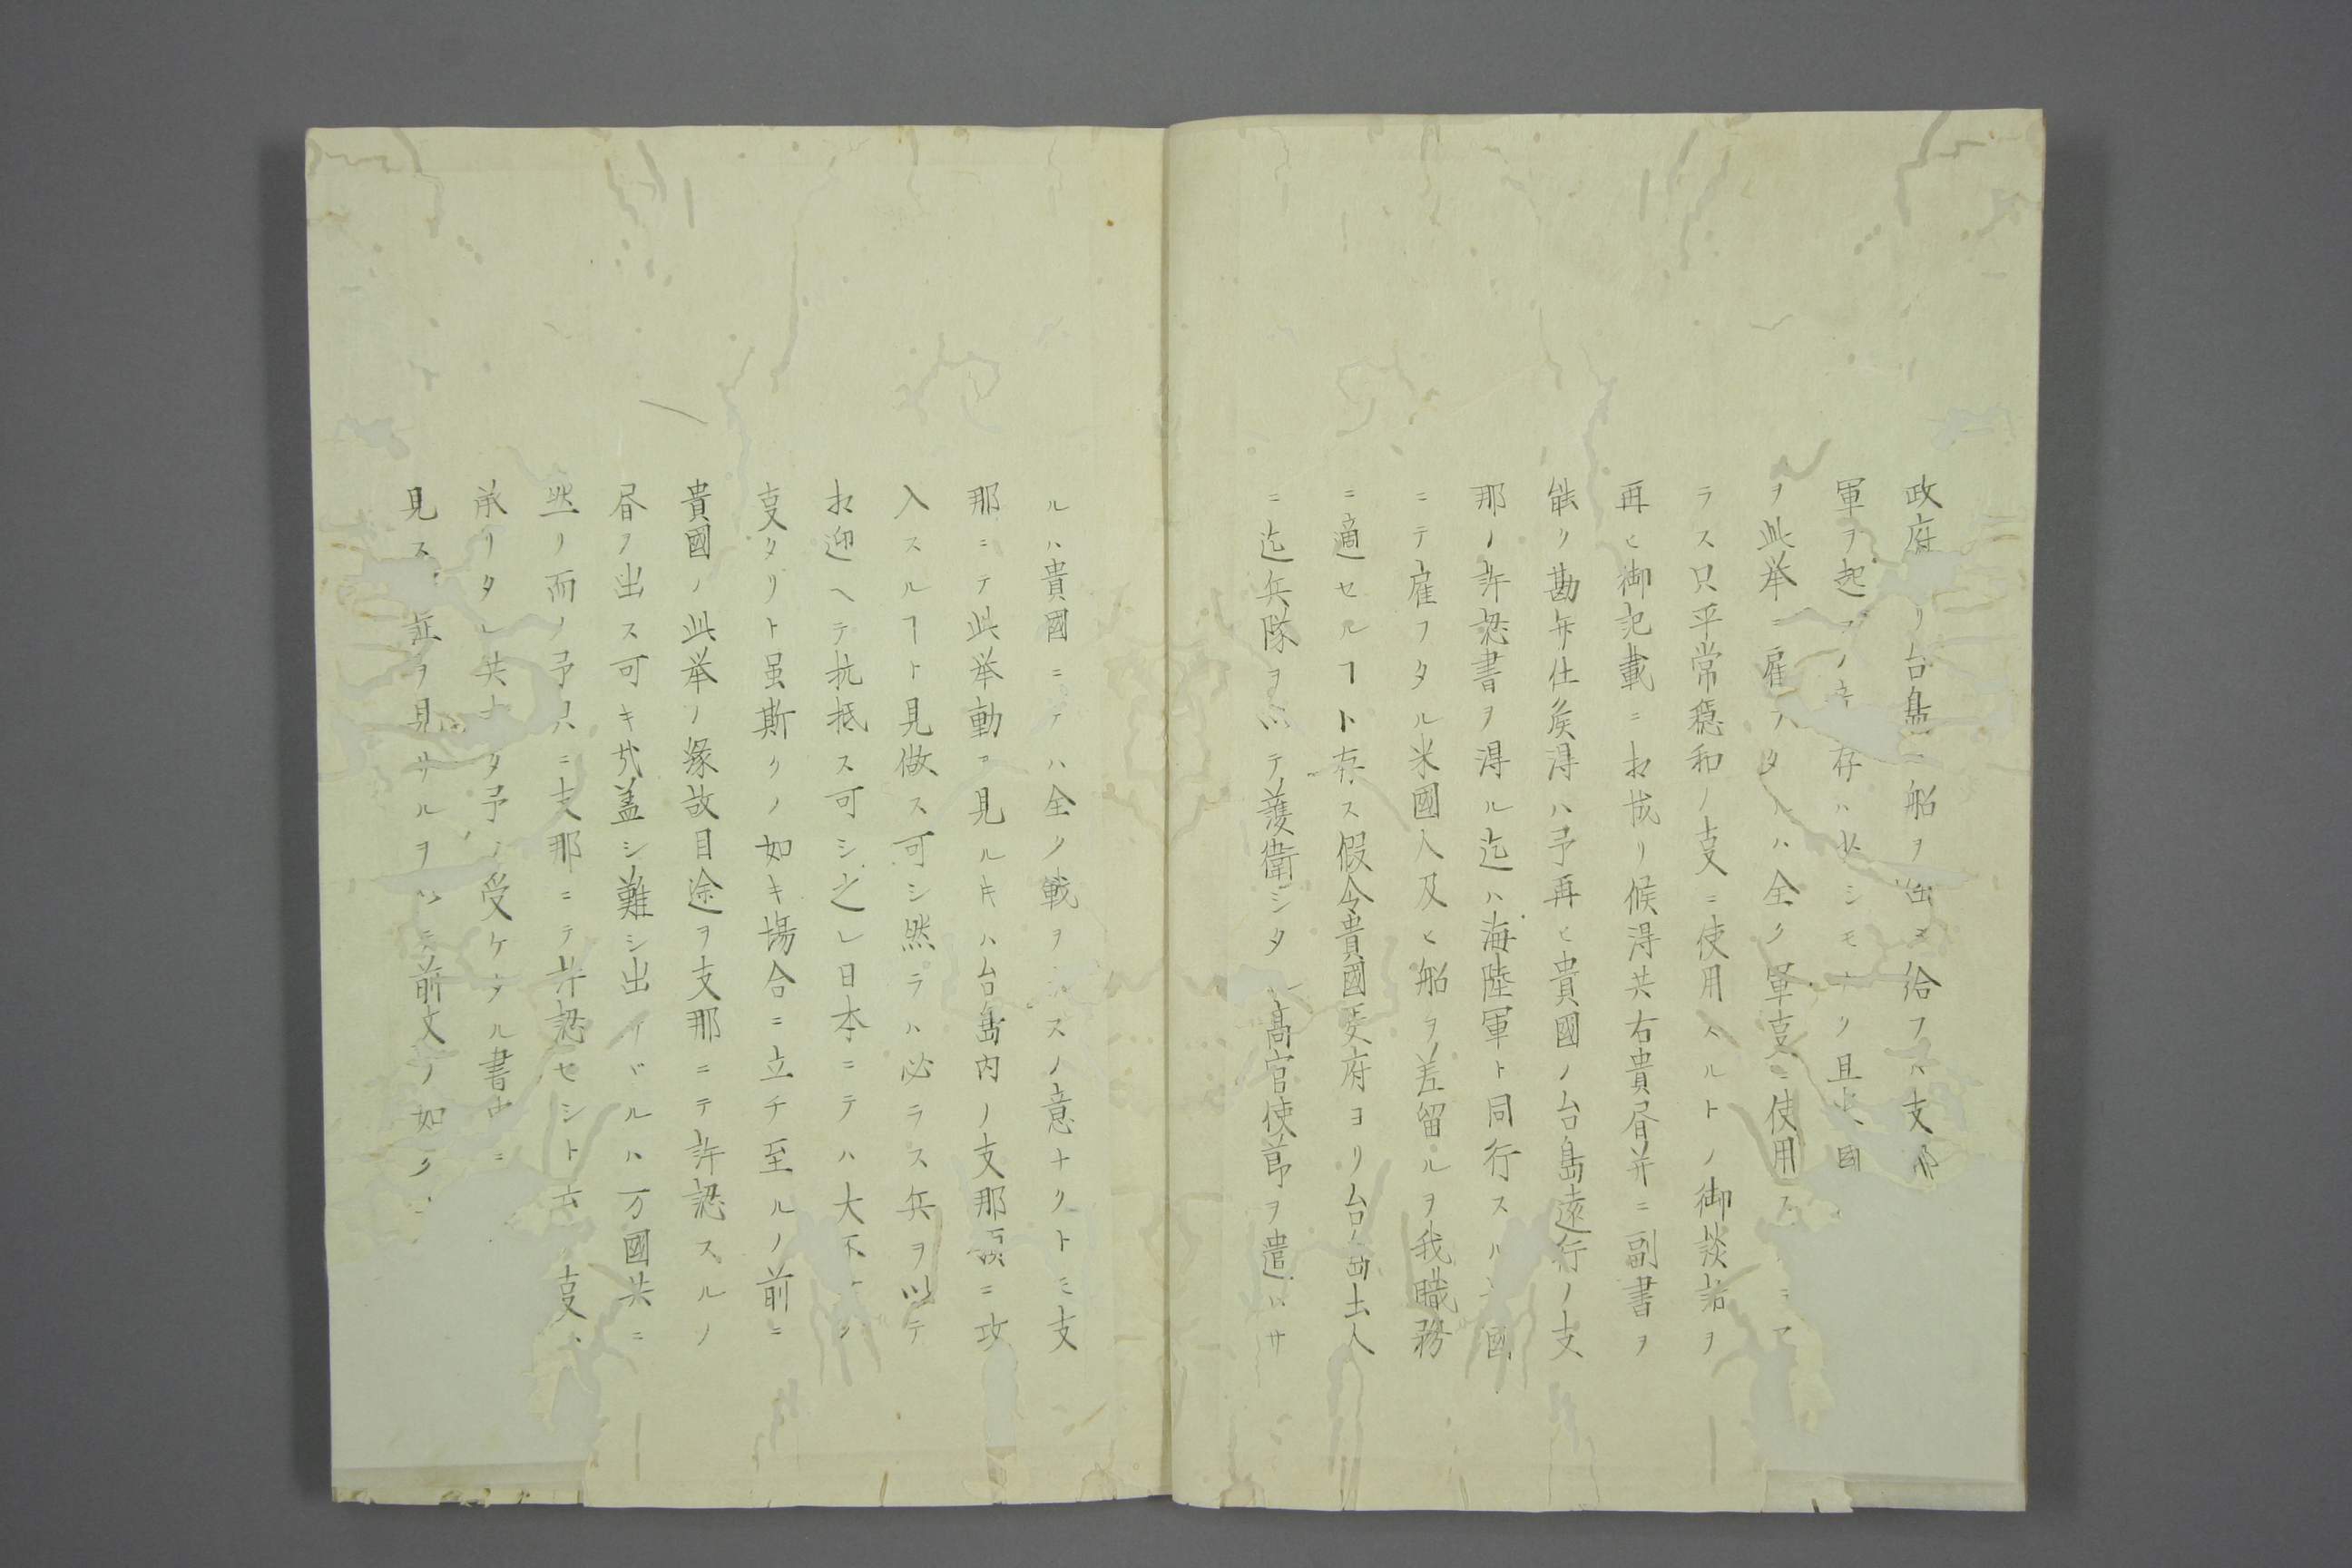 政府リ台島ニ船ヲ出メ給フハ支那
軍ヲ起スノ存ハ状シモナク且大國
ヲ此挙ニ雇フタルハ全ク軍支ニ使用スニア
ラス只平常穏和ノ支ニ使用スルトノ御談話ヲ
再ヒ御記載ニ相成リ候得共右貴厝并ニ副書ヲ
能ク勘弁仕候得ハ予再ヒ貴國ノ台島遠行ノ支
那ノ許認書ヲ得ル迄ハ海陸軍ト同行スル國
ニテ雇フタル米國人及ヒ船ヲ差留ルヲ我職務
ニ適セルヿト存ス假令貴國政府ヨリ台島土人
ニ迄兵隊ヲ以テ護衛シタル高官使節ヲ遣ハサ
ルハ貴國ニテハ全ク戦ヲスノ意ナクトミ支
那ニテ此挙動ヲ見ル片ハ台島内ノ支那領ニ攻
入スルヿト見做ス可シ然ラハ必ラス兵ヲ以テ
相迎ヘテ抗抵ス可シ之レ日本ニテハ大不
支タリト虽斯クノ如キ場合ニ立チ至ルノ前ニ
貴國ノ此挙ノ縁故目途ヲ支那ニテ許認スルノ
厝ヲ出ス可キ哉蓋シ難シ出イドルハ万國共ニ
然リ而ノ予只ニ支那ニテ許認セシト云支
承リタレ共ナタ予ノ受ケタル書中ニ
見ス証ヲ見サルヲ以テ前文ノ如ク